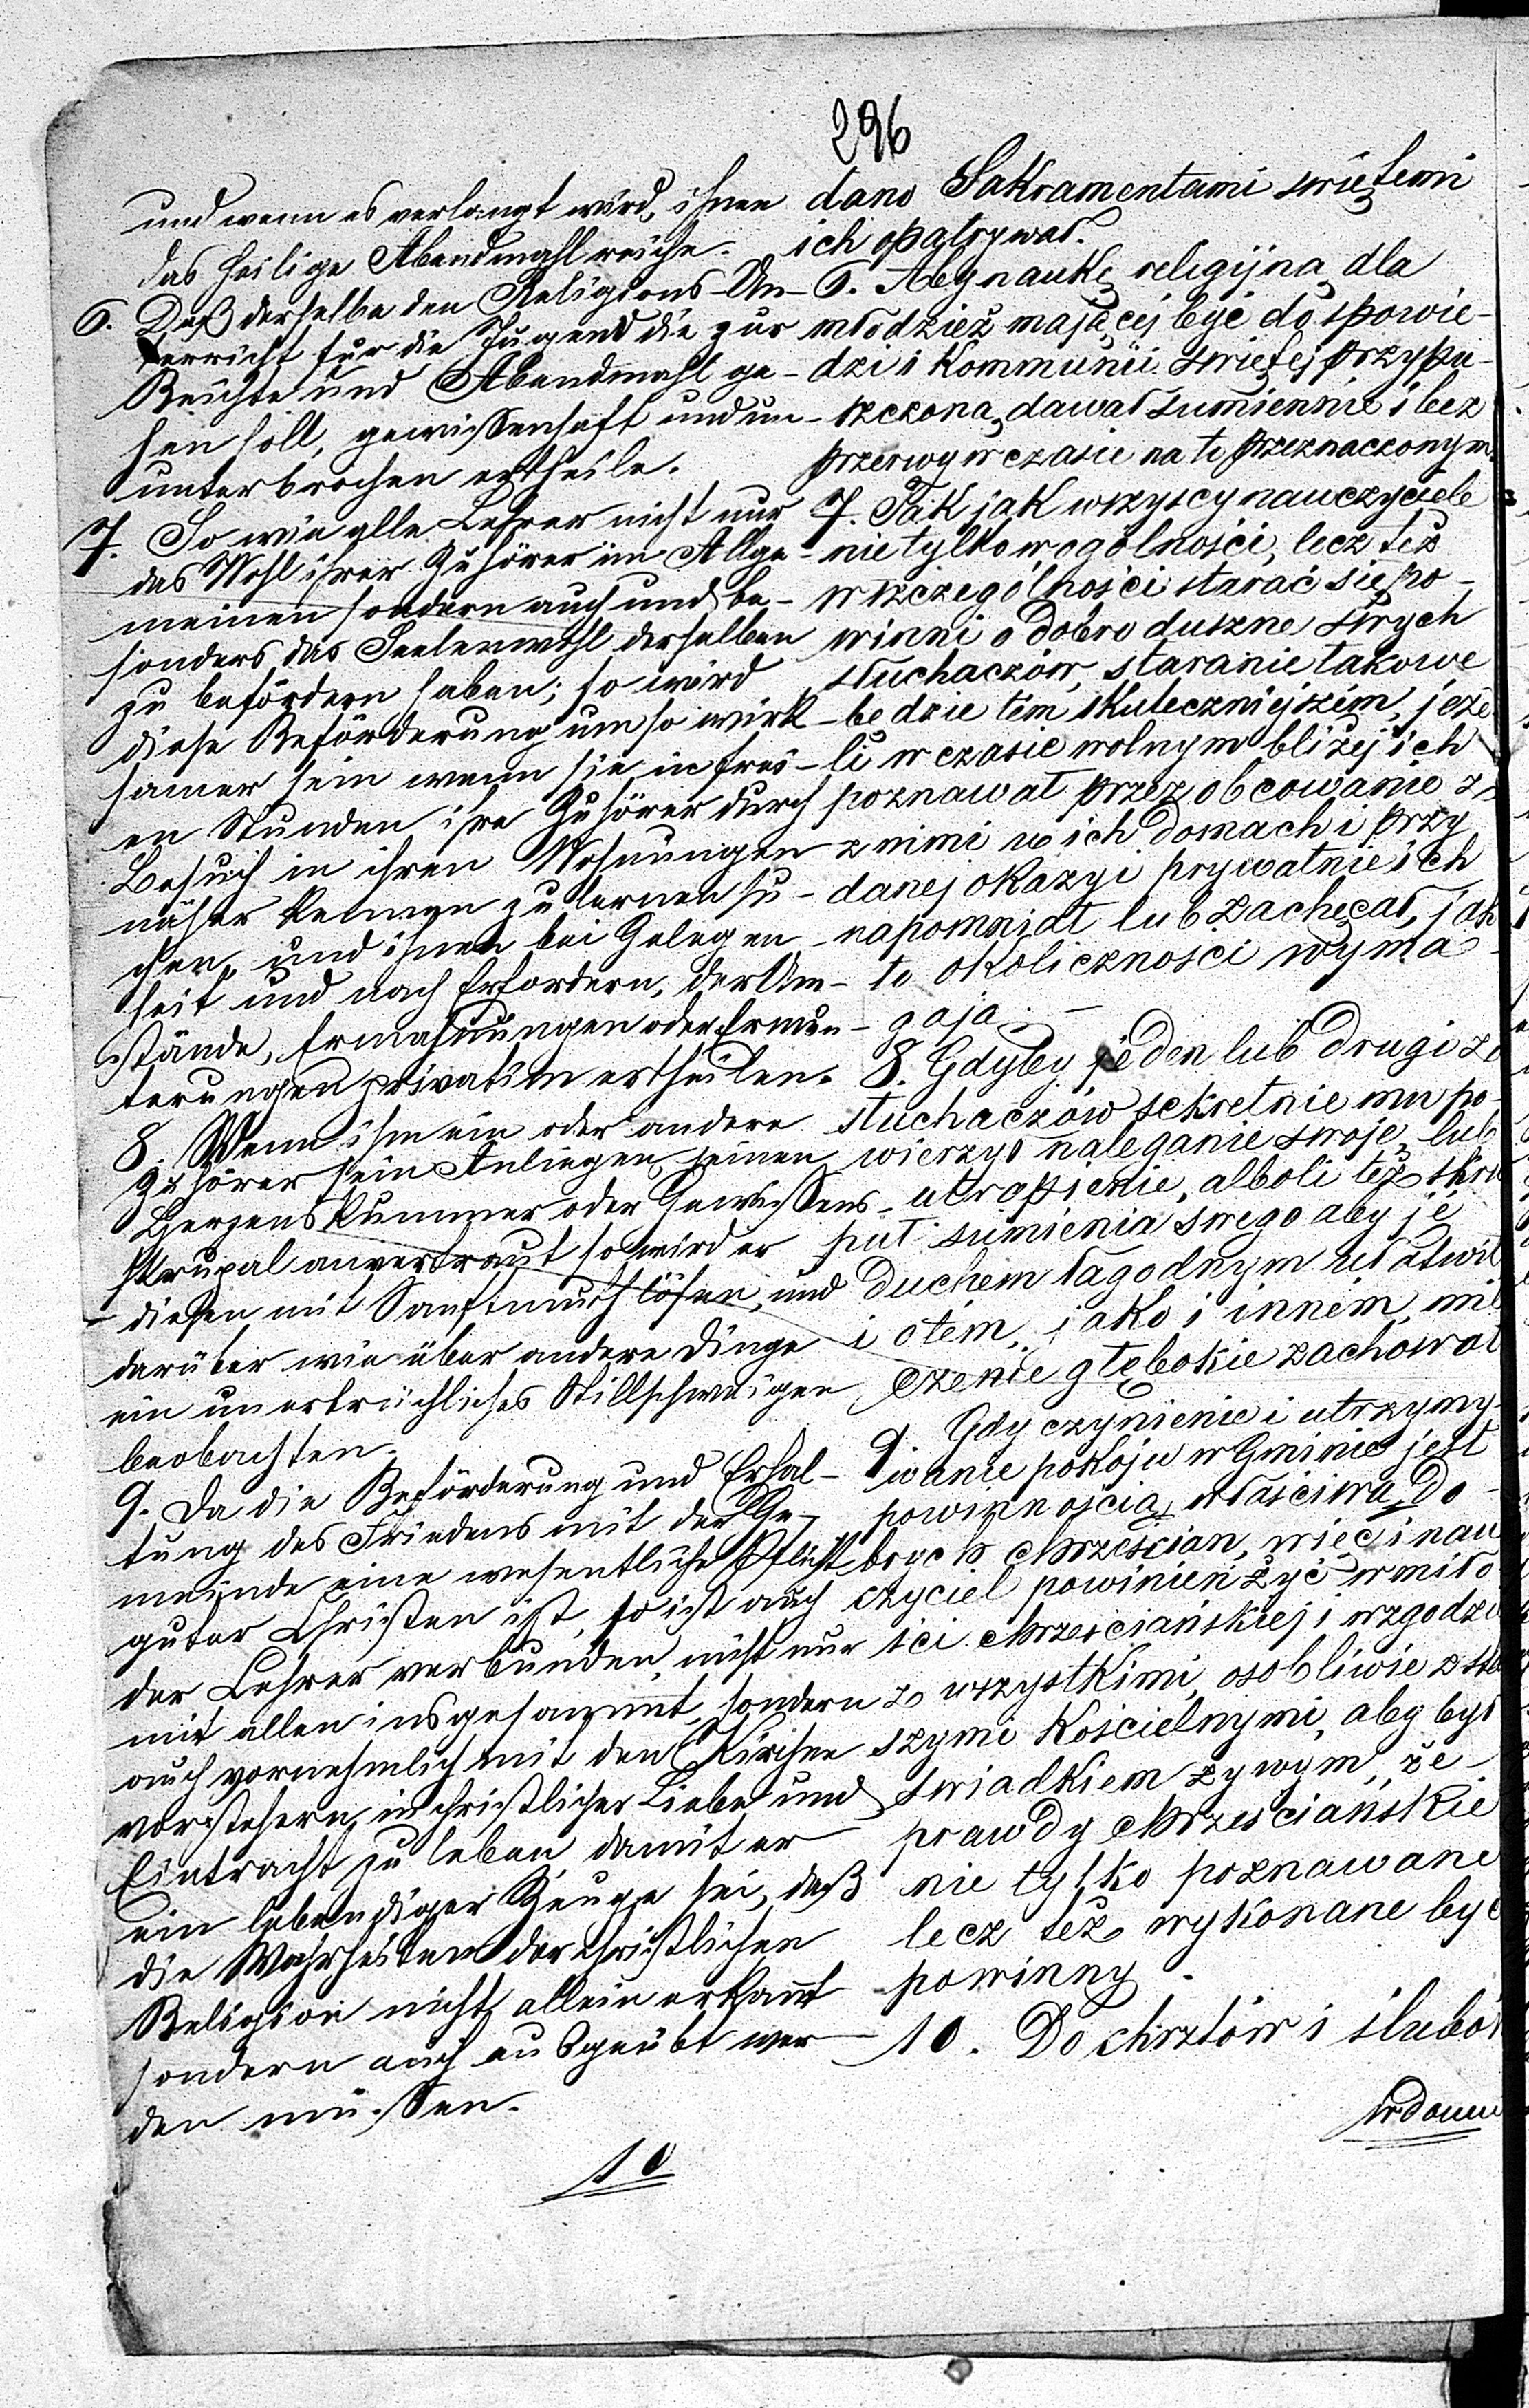 296
und wenn es verlangt wird, ihnen
das heilige Abendmahl reiche.
6. Daß derselbe den Religions-Un-
terricht für die Jugend die zur
Beichte und Abendmahl ge-
hen soll, gewissenhaft und un-
unterbrochen ertheile.
7. So wie alle Lehrer nicht nur
das Wohl ihrer Zuhörer im Allge-
meinen sondern auch und be-
sonders das Seelenwohl derselben
zu befördern haben; so wird
diese Beförderung um so wirk-
samer sein wenn sie in frei-
en Stunden ihre Zuhörer durch
Besuch in ihren Wohnungen
näher kennen zu lernen su-
chen, und ihnen bei Gelegen-
heit und nach Erfordern, der Um-
stände, Ermahnungen oder Ermun-
terungen privatim ertheilen.
8. Wenn ihm ein oder andere
Zuhörer sein Anliegen, seinen
Herzenskummer oder Gewissens-
skrupal anvertraut so wird er
diesen mit Sanftmuth lösen, und
darüber wie über andere Dinge
ein unerbrüchliches Stillschweigen
beobachten.
9. Da die Beförderung und Erhal-
tung des Friedens mit der Ge-
meinde eine wesentliche Pflicht
guter Christen ist, so ist auch
der Lehrer verbunden, nicht nur
mit allen insgesammt, sondern
auch vornehmlich mit den Kirchen
vorstehern, in christlicher Liebe und
Eintracht zu leben damit er
ein lebendiger Zeuge sei, daß
die Wahrheiten der christlichen
Religion nicht allein erkannt
sondern auch ausgeübt wer-
den müssen.
10
dano Sakramentami swiętemi
ich opatrywał.
6. Aby naukę religijną dla
młodzież mającej być do spowie-
dzi i Kommunii swietej przypu-
szczona, dawał sumiennie i bez
przerwy w czasie na to przeznaczonym.
7. Tak jak wszyscy nauczyciele
nie tylko w ogólności, lecz też
w szczególności starać się po-
winni o dobro duszne swych
słuchaczów, staranie takowe
bedzie tém skuteczniejszém, jeże-
li w czasie wolnym bliżej ich
poznawał przez obcowanie z
z nimi w ich domach i przy
danej okazyi prywatnie ich
napomniał lub zachęcał, jak
to okoliczności wyma-
gają. —
8. Gdyby jeden lub drugi ze
słuchaczów sekretnie mu po-
wierzył naleganie swoje, lub
utrapienie, alboli też skru
puł sumienia swego aby je
duchem łagodnym ułatwił
i o tém, jako i inném mil
czenie głębokie zachował
9. Gdy czynienie i utrzymy-
wanie pokoju w Gminie jest
powinnością właściwą do-
brych chrześcian, więc i nau
czyciel powinień żyć w miło-
ści chrześciańskiej i w zgodzie
z wszystkimi, osobliwie z star
szymi Kościelnymi, aby był
swiadkiem żywym, że
prawdy chrześciańskie
nie tylko poznawane
lecz też wykonane być
powinny.
10. Do chrztów i ślubów
w domu